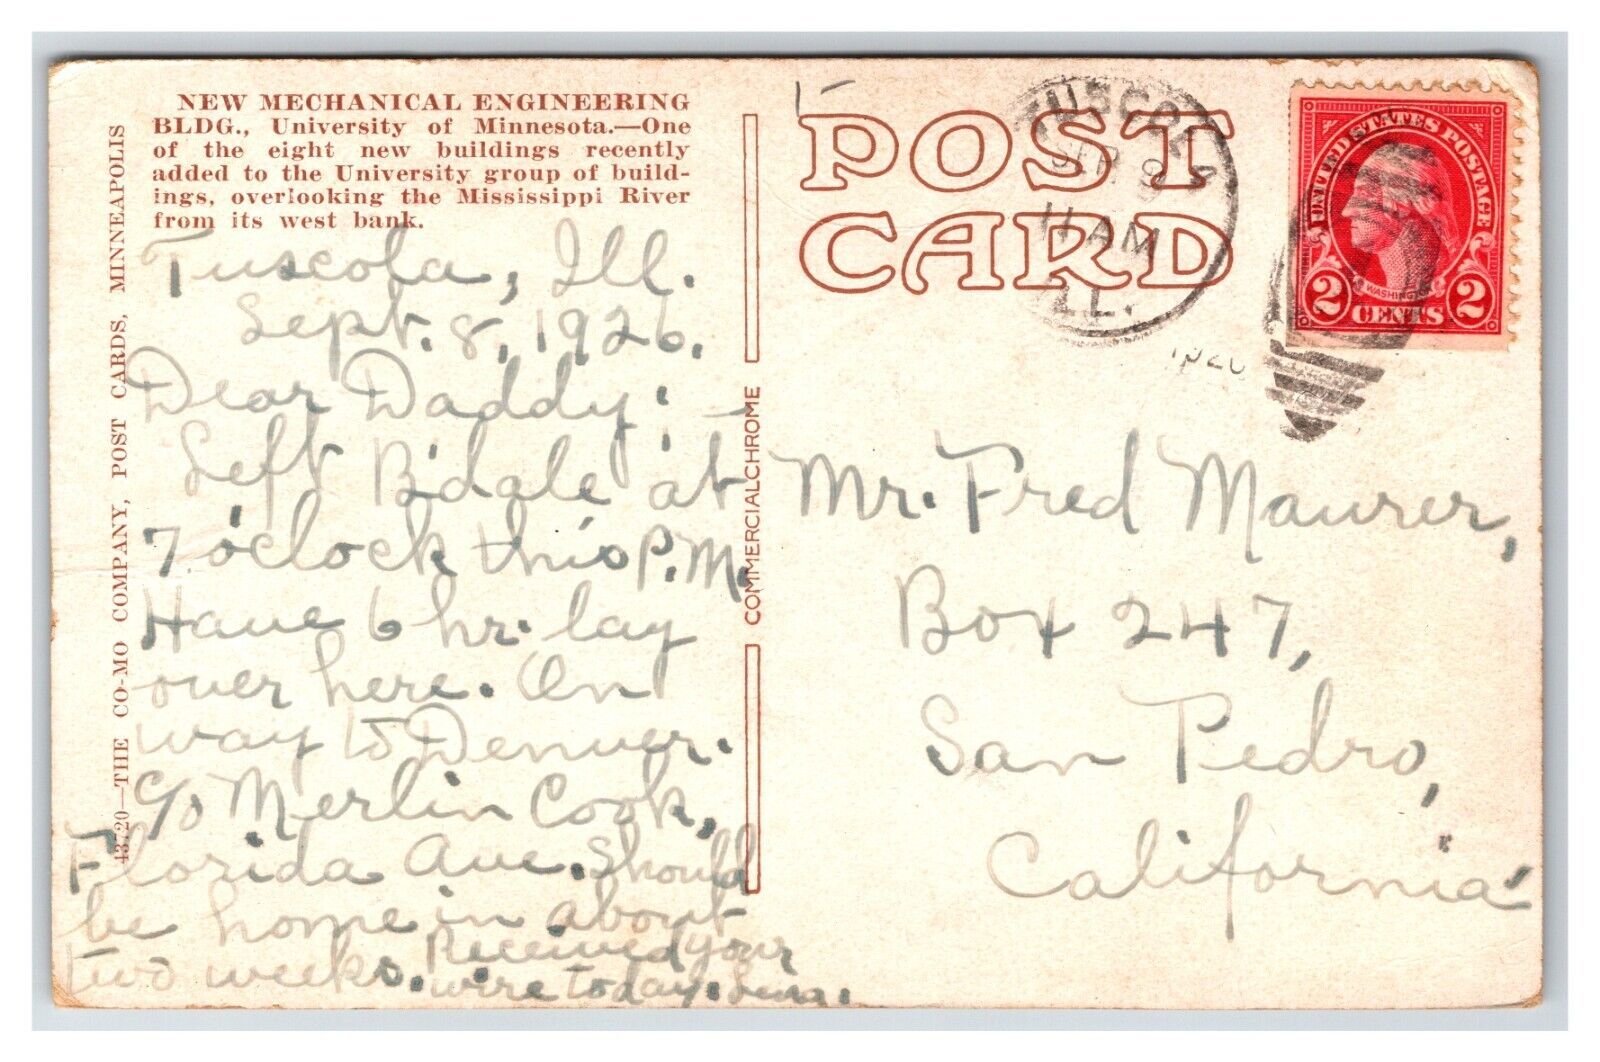 NEW MECHANICAL ENGINEERING
BLDG., University of Minnesota.—One
of the eight new buildings recently
added to the University group of build-
ings, overlooking the Mississippi River
from its west bank.
43720—THE CO-MO COMPANY, POST CARDS, MINNEAPOLIS
Tuscola, Ill.
Sept. 8, 1926.
Dear Daddy:
Left B'dale at
7 o'clock this P.M.
Have 6 hr. lay
over here. On
way to Denver.
c/o Merlin Cook,
Florida Ave. Should
be home in about
two weeks. Received your
wire today.
COMMERCIALCHROME
POST
CARD
TUSCOLA
SEP 9
11 AM
ILL.
1926
UNITED STATES POSTAGE
WASHINGTON
2 CENTS 2
Mr. Fred Maurer,
Box 247,
San Pedro,
California